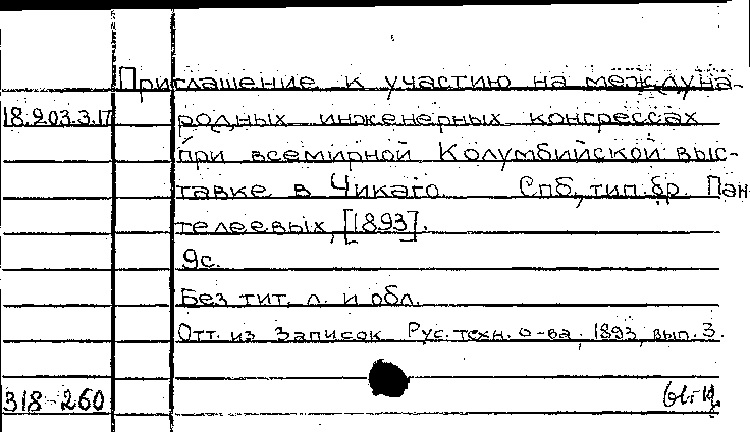 Приглашение к участию на междуна-
18.203.3.17 родных инженерных конгрессах
при всемирной Колумбийской выс-
тавке в Чикаго. Спб, тип. бр. Пан
телеевых, [1893].
9с.
Без тит. л. и обл.
Отт. из Записок Рус. техн. о-ва, 1893, вып. 3.
318-260